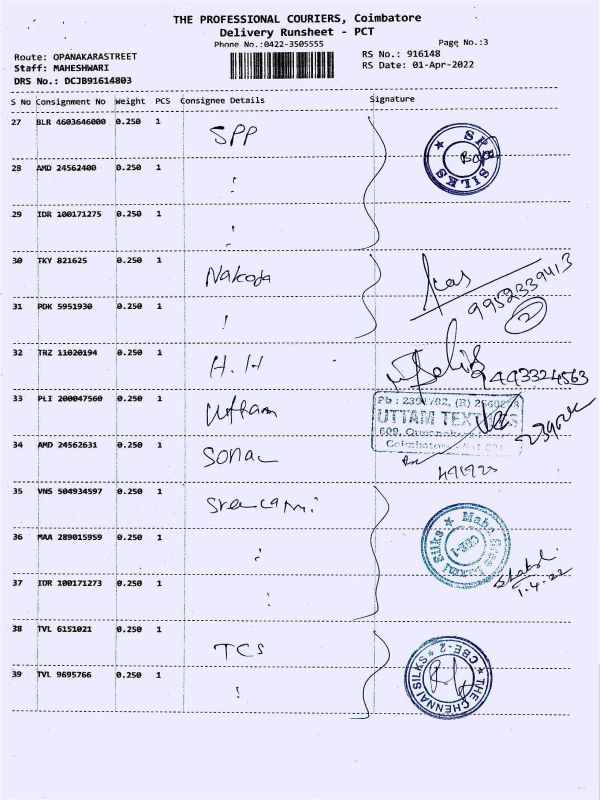 THE PROFESSIONAL COURIERS, Coimbatore
Delivery Runsheet - PCT
Phone No.:0422-3505555
Page No.:3
Route: OPANAKARASTREET
RS No.: 916148
Staff: MAHESHWARI
RS Date: 01-Apr-2022
DRS No.: DCJB91614803
S No Consignment No Weight PCS Consignee Details Signature
27 BLR 4603646000 0.250 1 SPP
SILKS
28 AMD 24562400 0.250 1
29 IDR 100171275 0.250 1
30 TKY 821625 0.250 1 Nakoda
9952339413
2
31 PDK 5951930 0.250 1
32 TRZ 11020194 0.250 1 H.H
9443324563
33 PLI 200047560 0.250 1 Uttam
UTTAM
34 AMD 24562631 0.250 1 Sona
35 VNS 504934597 0.250 1
36 MAA 289015959 0.250 1
Silks
CBE-1
37 IDR 100171273 0.250 1
1.4.22
38 TVL 6151021 0.250 1 TCS
39 TVL 9695766 0.250 1
THE CHENNAI SILKS CBE-2